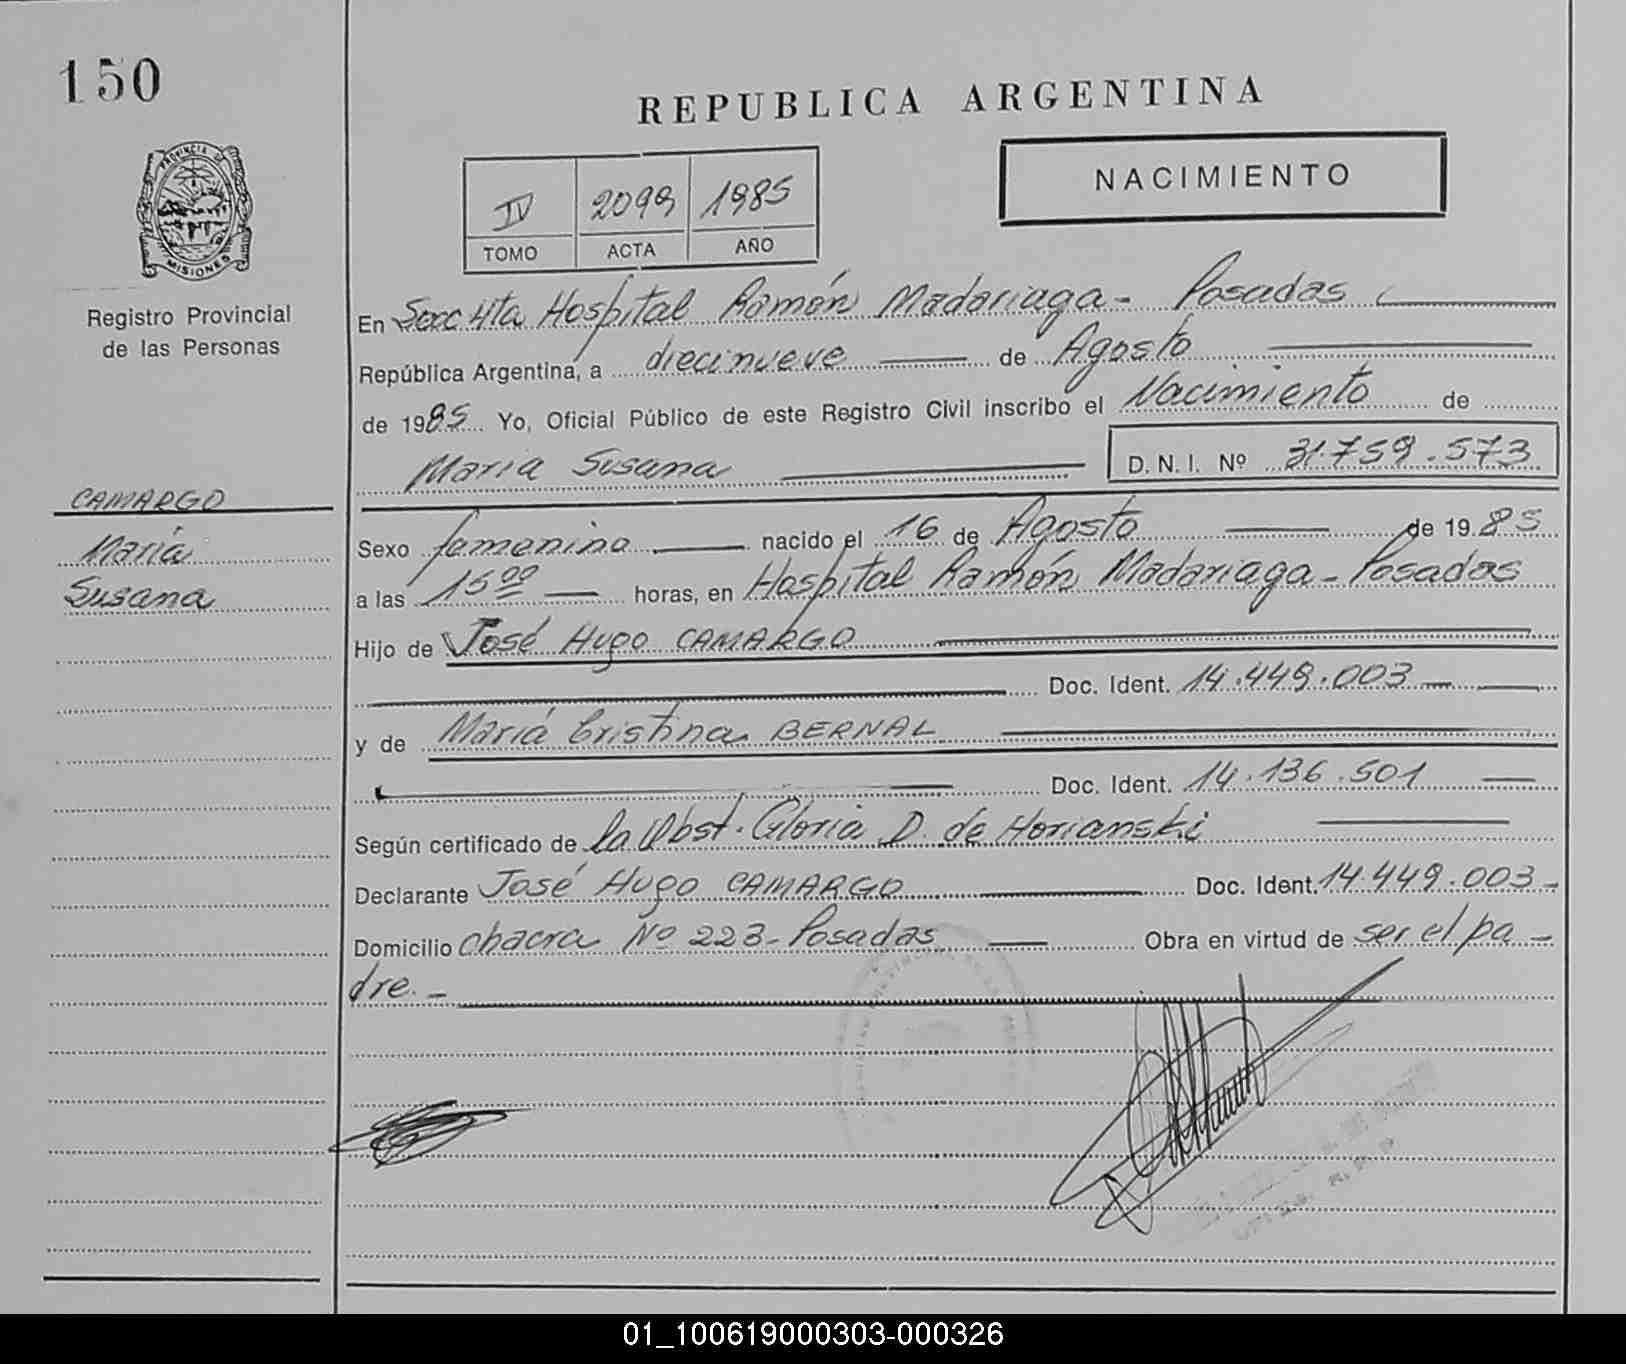 150
REPUBLICA ARGENTINA
NACIMIENTO
IV 2099 1985
TOMO ACTA AÑO
PROVINCIA DE
MISIONES
Registro Provincial
de las Personas
En Secc 4ta Hospital Ramón Madariaga - Posadas
República Argentina, a diecinueve de Agosto
de 1985 Yo, Oficial Público de este Registro Civil inscribo el Nacimiento de
Maria Susana D. N. I. Nº 31.759.573
CAMARGO
María
Susana
Sexo femenino nacido el 16 de Agosto de 1985
a las 15 00 horas, en Hospital Ramón Madariaga - Posadas
Hijo de José Hugo CAMARGO
Doc. Ident. 14.449.003
y de María Cristina BERNAL
Doc. Ident. 14.136.501
Según certificado de la Obst. Gloria D. de Horianski
Declarante José Hugo CAMARGO Doc. Ident. 14.449.003 -
Domicilio chacra Nº 223 - Posadas Obra en virtud de ser el pa -
dre. -
01_100619000303-000326